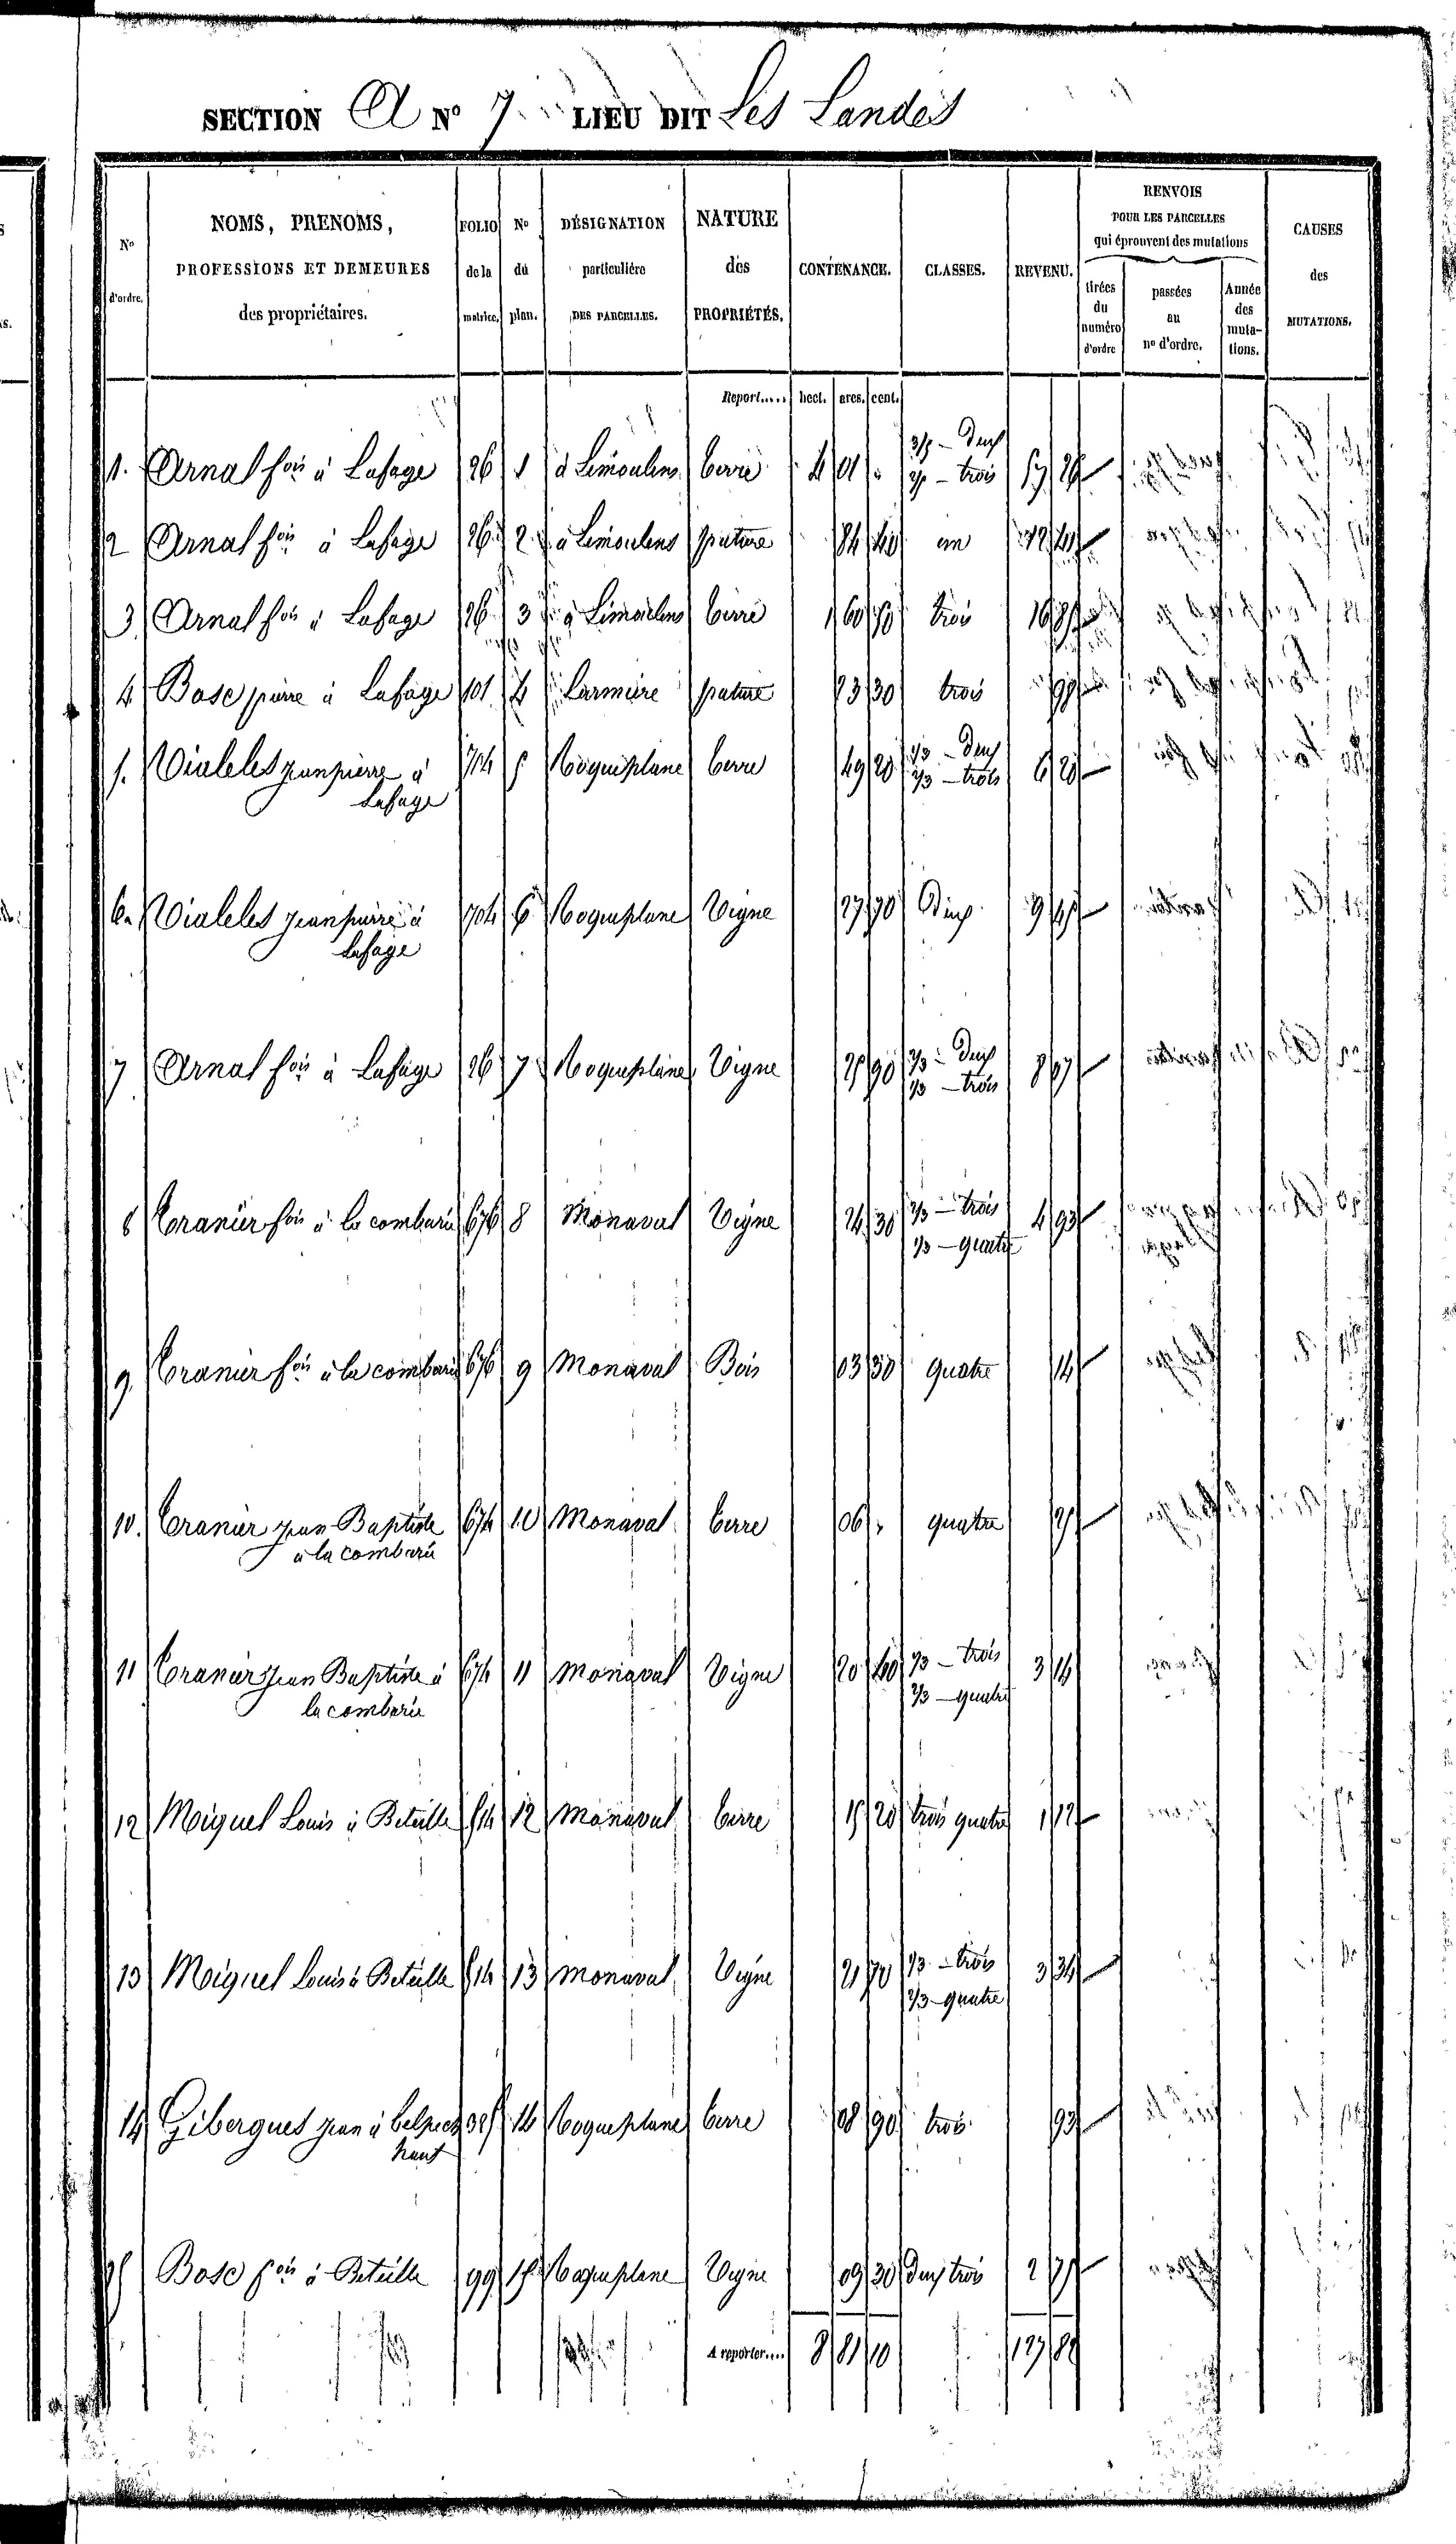 SECTION A N° 7 LIEU DIT Les Landes
N° d'ordre.
NOMS, PRENOMS, PROFESSIONS ET DEMEURES des propriétaires.
FOLIO de la matrice.
N° du plan.
DÉSIGNATION particulière DES PARCELLES.
NATURE des PROPRIÉTÉS.
CONTENANCE.
CLASSES.
REVENU.
RENVOIS POUR LES PARCELLES qui éprouvent des mutations
tirées du numéro d'ordre
passées au n° d'ordre.
Année des mutations.
CAUSES des MUTATIONS.
Report..... hect. ares. cent.
1. Arnal fois à Lafage 26 1 à Limoulens terre 4 01 " Deux trois 57 26
2 Arnal fois à Lafage 26 2 à Limoulens pature 84 40 un 12 40
3 Arnal fois à Lafage 26 3 à Limoulens terre 1 60 50 trois 16 85
4 Bose pierre à Lafage 101 4 Larmiere pature 23 30 trois 98
5. Vialeles jean pierre à 704 5 Roqueplane terre 49 20 1/3 - Deux 2/3 - trois 6 20
Lafage
6. Vialeles jean pierre à 704 6 Roqueplane Vigne 27 70 Deux 9 45
Lafage
7 Arnal fois à Lafage 26 7 Roqueplane Vigne 25 90 2/3 - Deux 1/3 - trois 8 07
8 Cranier fois à la combarie 676 8 Monaval Vigne 24 30 2/3 - trois 1/3 - quatre 4 93
9 Cranier fois à la combarie 676 9 Monaval Bois 03 50 quatre 14
10. Cranier jean Baptiste 674 10 Monaval terre 06 " quatre 25
à la combarie
11 Cranier jean Baptiste à 674 11 Monaval Vigne 20 40 1/3 - trois 2/3 - quatre 3 14
la combarie
12 Moiguel Louis à Beteille 514 12 Monaval terre 15 20 trois quatre 1 12
13 Moiguel Louis à Beteille 514 13 Monaval Vigne 21 70 1/3 - trois 2/3 - quatre 3 34
14 Gibergues jean à belpech 325 14 Roqueplane terre 08 90 trois 93
haut
15 Bose fois à Beteille 99 15 Roqueplane Vigne 09 30 Deux trois 2 75
A reporter.... 8 81 10 127 82